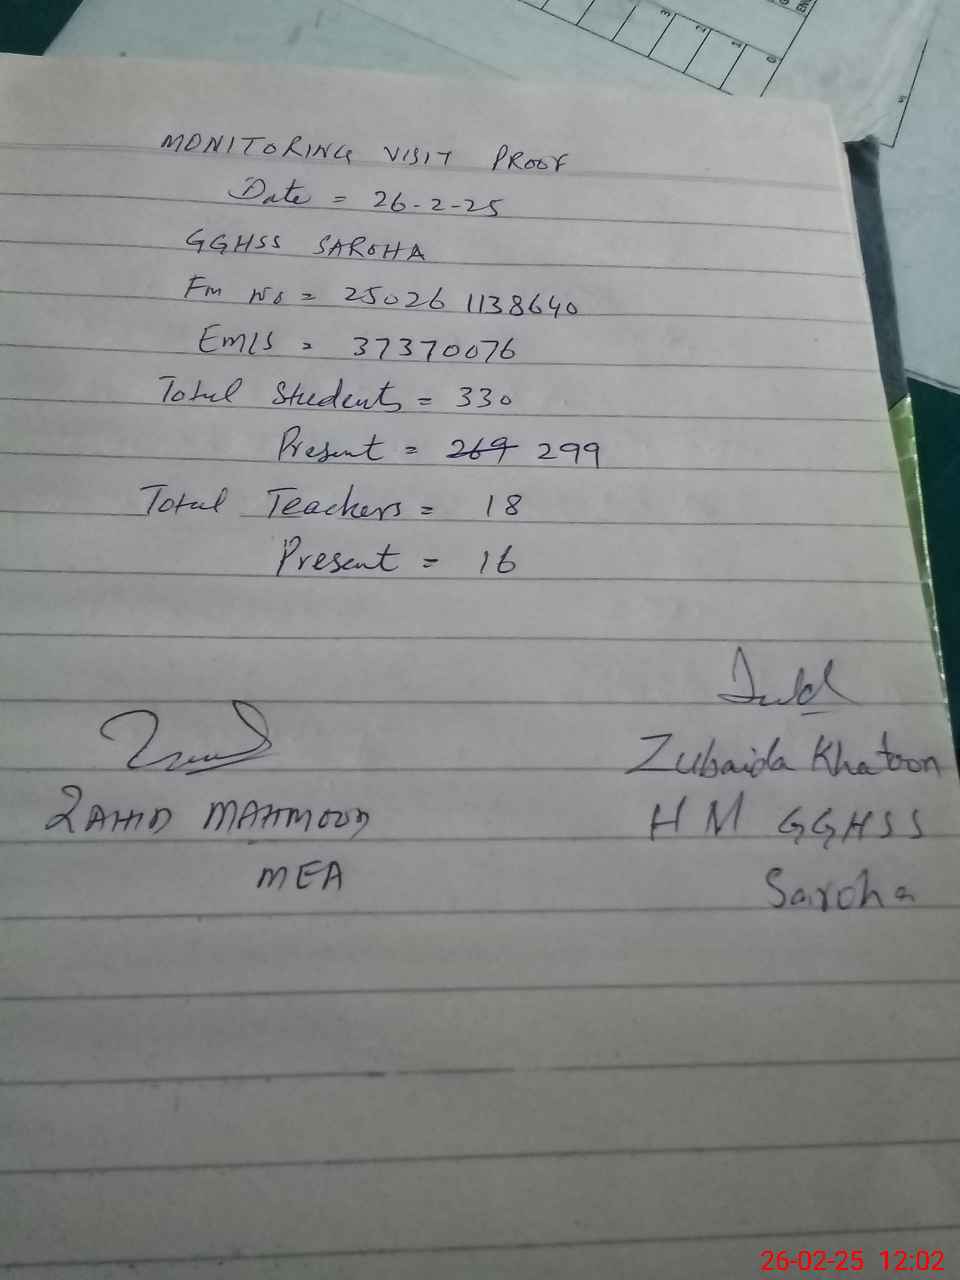 MONITORING VISIT PROOF
Date = 26-2-25
GGHSS SAROHA
Fm No = 25026 1138640
EMIS = 37370076
Total Students = 330
Present = 269 299
Total Teachers = 18
Present = 16
ZAHID MAHMOOD
MEA
Zubaida Khatoon
HM GGHSS
Saroha
26-02-25 12:02